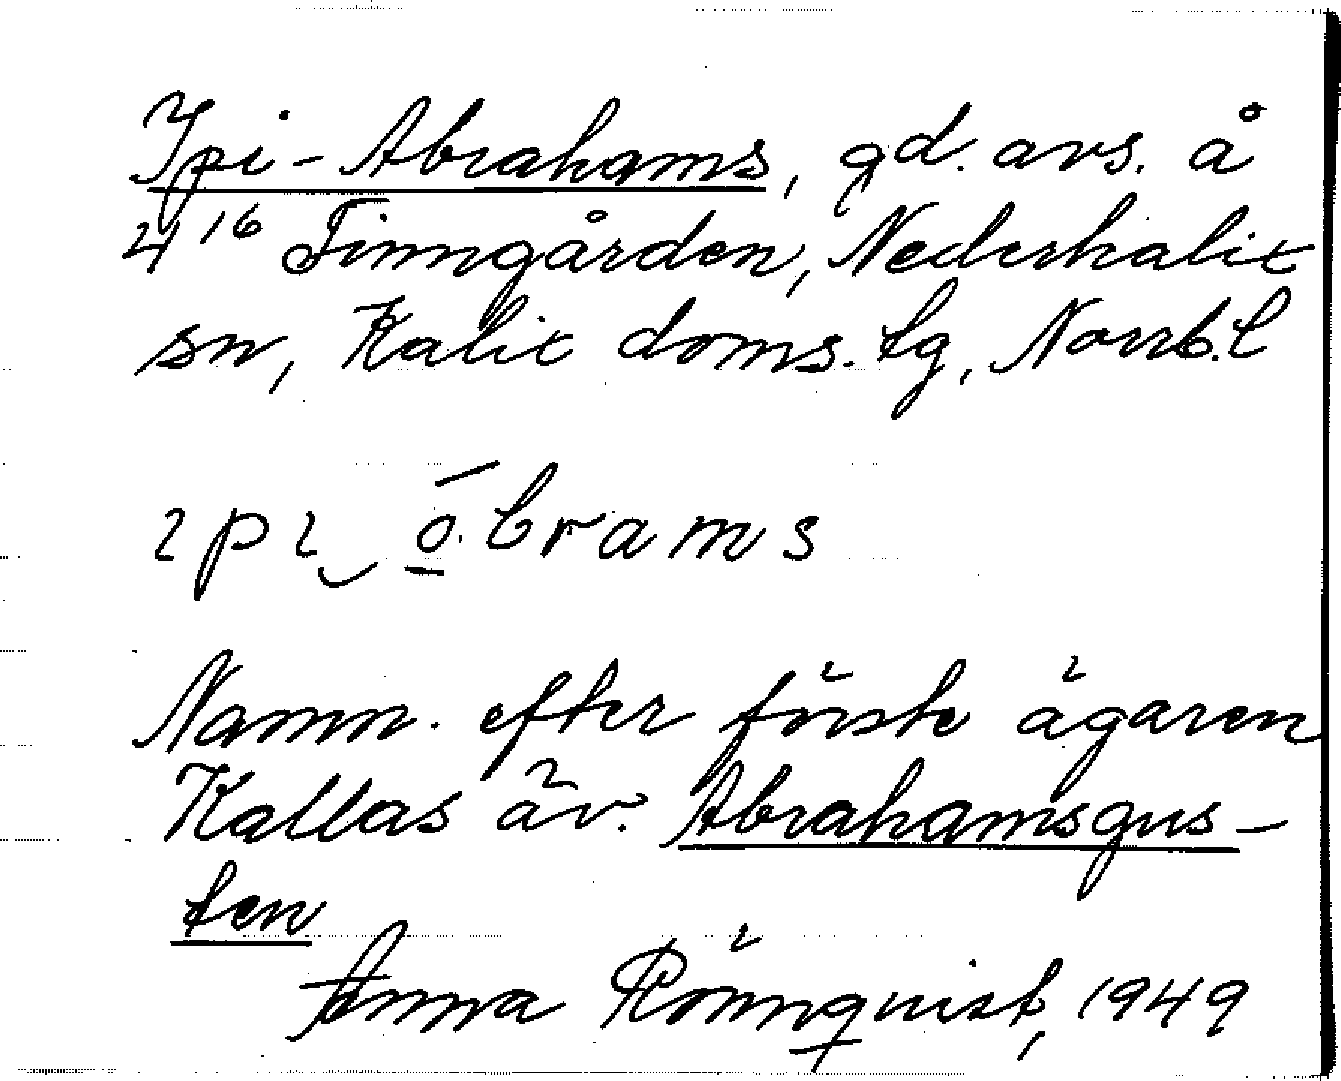 Ipi-Abrahams, gd. avs. å
4¹⁶ Finngården, Nederkalix
sn, Kalix doms. tg, Norrb. l
ɩpɩ‿o̱̅.brams
Namn. efter förste ägaren
Kallas äv. Abrahamsgus-
ten
Anna Rönnqvist, 1949